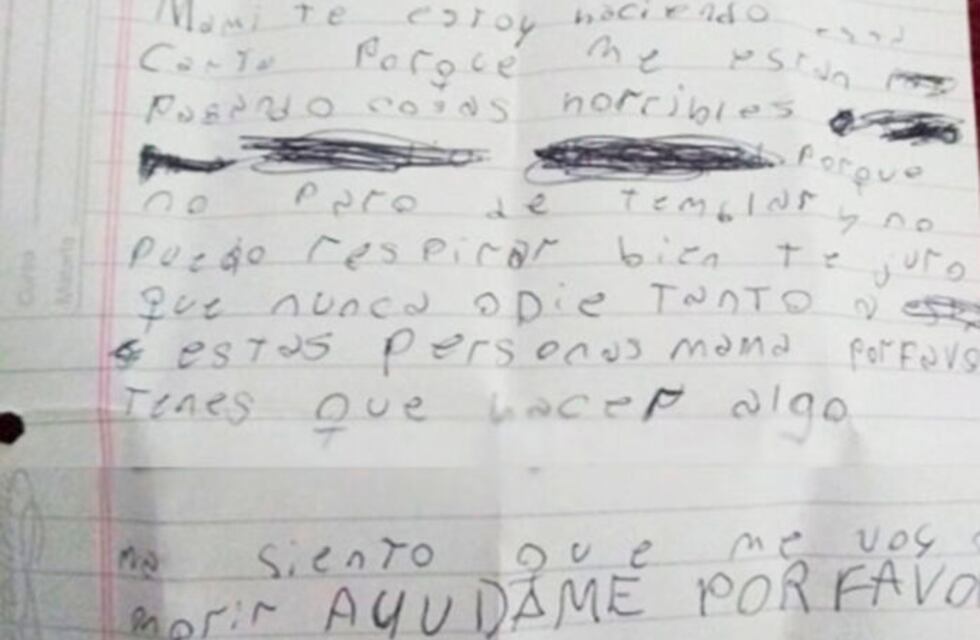 Mami te estoy haciendo esta
Carta Porque me estan
Pasando cosas horribles
Porque
no paro de temblar y no
puedo respirar bien te juro
que nunca odie TanTo a
estas personas mama porfavo
Tenes que hacer algo
me sienTo que me voy a
morir AYUDAME POR FAVO